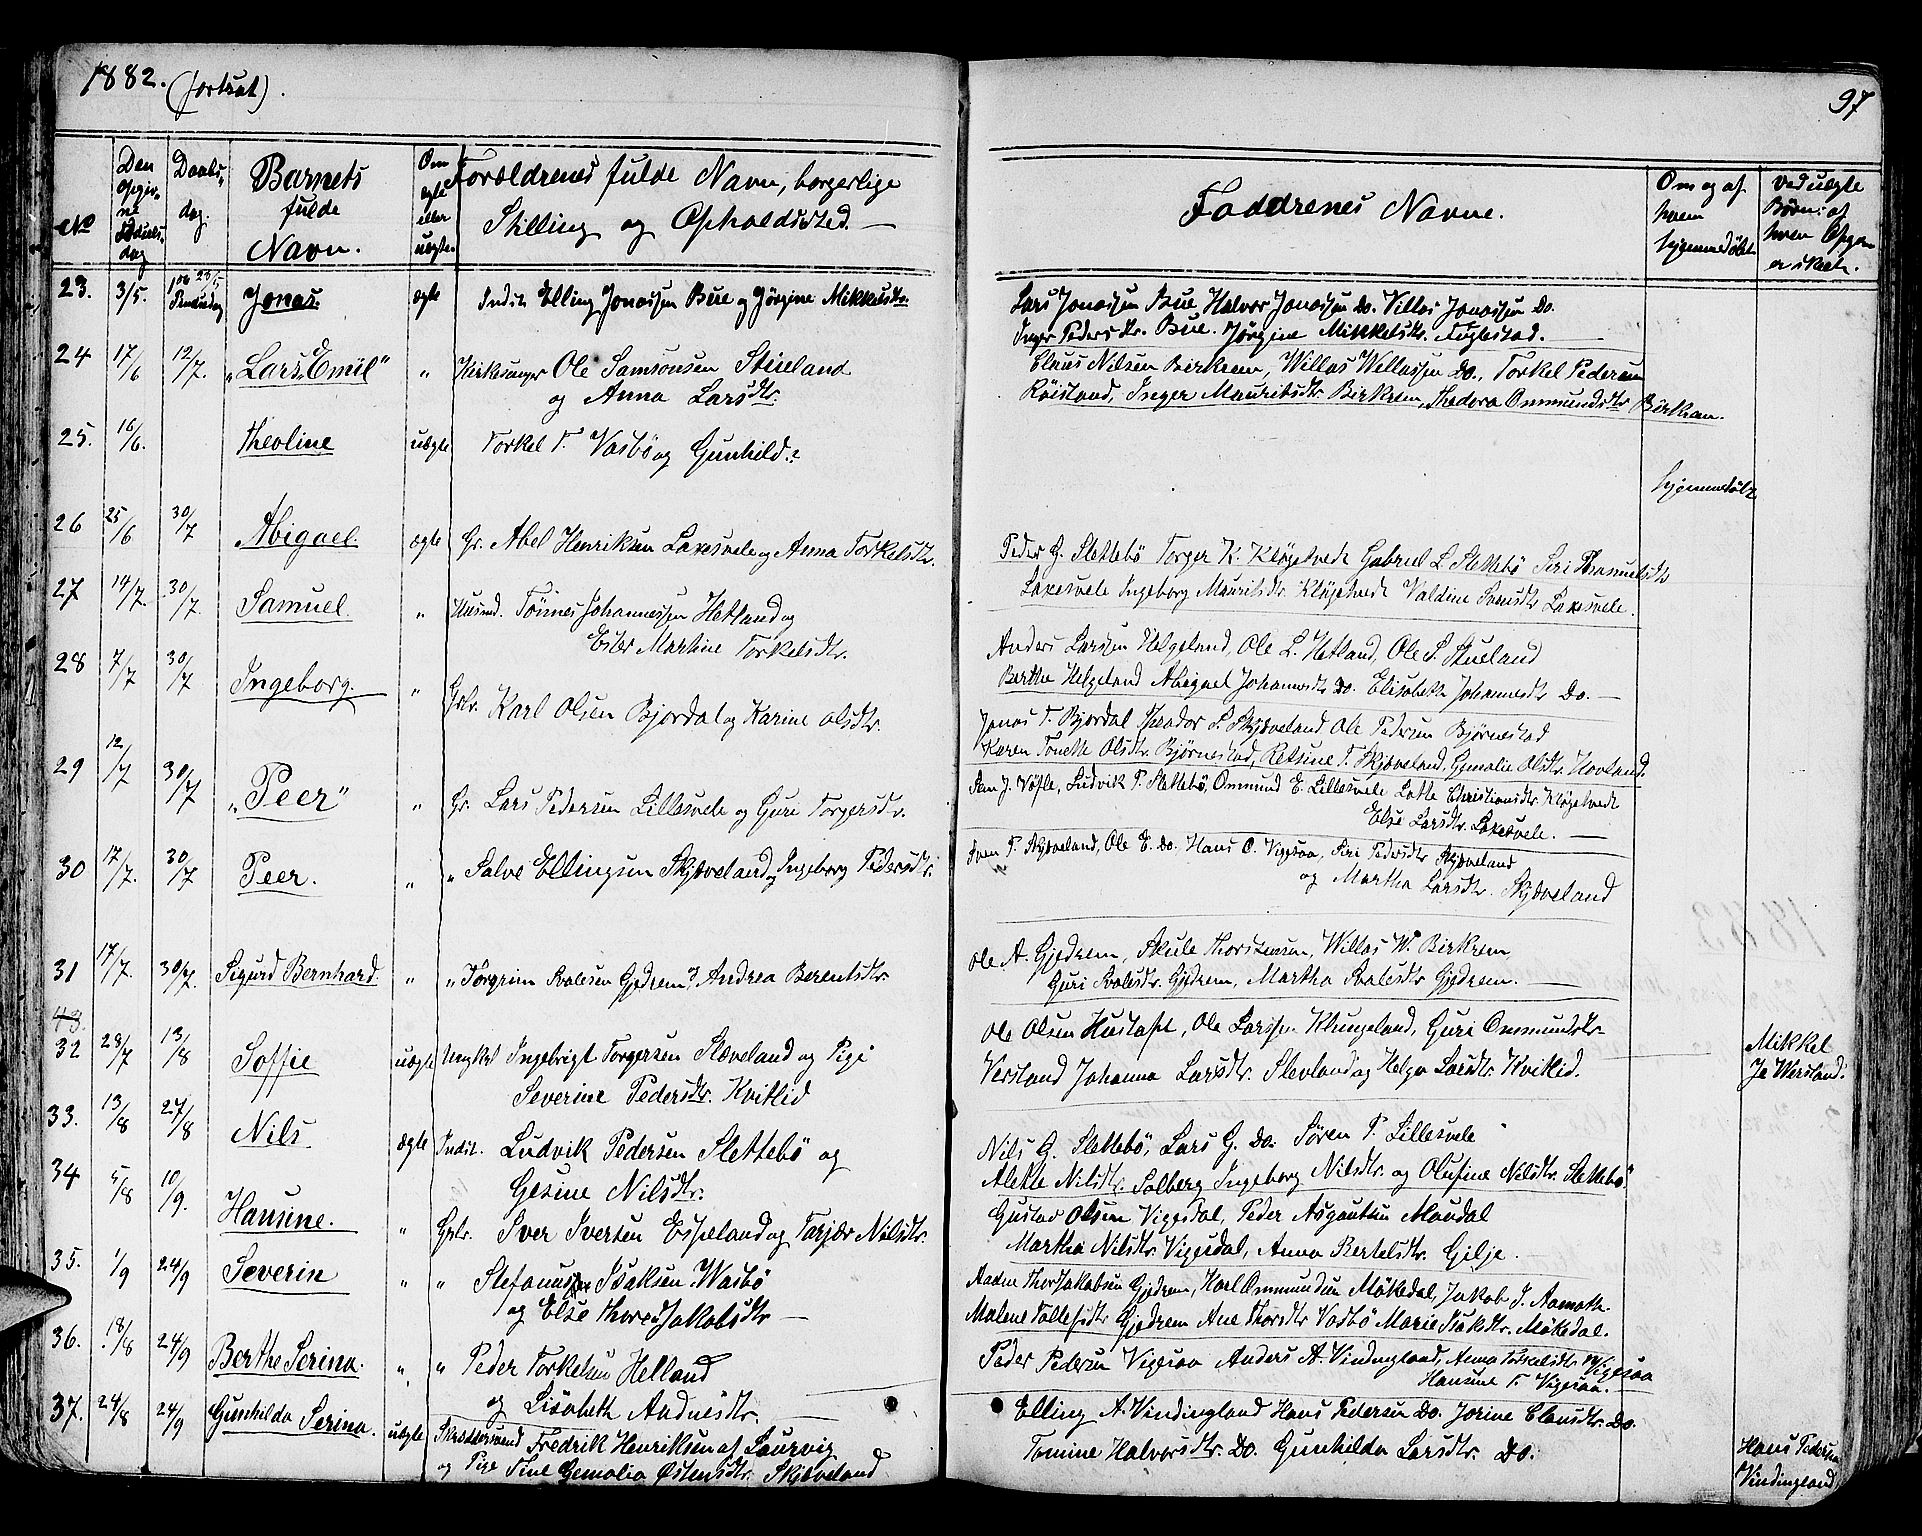 1882. (fortsat).
97
No
Den opgivne Fødselsdag
Daabsdag.
Barnets fulde Navn.
Om ægte eller uægte.
Forældrenes fulde Navn, borgerlige
Stilling og Opholdssted.
Faddrenes Navne.
Om og af hvem hjemmedøbt
Ved uægte Børn: af hvem Opgaven er skeet.
23. 3/5. Jonas. ægte Indst. Elling Jonassen Bue og Jørgine Mikkelsdtr.
Lars Jonassen Bue Halvor Jonassen Do. Villas Jonassen Do.
Inger Pedersdtr. Bue. Jørgine Mikkelsdtr. Fuglestad.
24 17/6 12/7. "Lars Emil" " Kirkesanger Ole Samsonsen Stueland
og Anna Larsdtr.
Claus Nilsen Birkrem, Willas Willassen Do., Torkel Pedersen
Røisland, Inger Mauritsdtr. Birkrem, Thedora Ommundsdtr Birkrem.
25. 16/6. Theoline uægte Torkel T. Vasbø og Gunhild.?
hjemmedøbt
26 25/6 30/7 Abigael. ægte Gr. Abel Henriksen Laxesvele og Anna Torkelsdtr.
Peder G. Slettebø Torger K. Kløgetvedt Gabriel L Slettebø Siri Thomuelsdtr
Laxesvele Ingeborg Mauritsdtr. Kløgetvedt Valdine Svensdtr Laxesvele.
27 14/7. 30/7. Samuel. " Husmd. Tønnes Johannessen Hetland og
Ester Martine Torkelsdtr.
Anders Larsen Helgeland, Ole L. Hetland, Ole S. Stueland
Berthe Helgeland Abigael Johannesdtr Do. Elisabeth Johannesdtr Do.
28 7/7 30/7 Ingeborg. " Gbr. Karl Olsen Bjordal og Karine Olsdtr.
Jonas T. Bjordal Theodor S. Skjæveland Ole Pedersen Bjørnestad
Karen Tonette Olsdtr. Bjørnestad, Retsine T. Skjæveland, Gemalie Olsdtr. Hovland.
29 12/7 30/7 "Peer" " Gr. Lars Pedersen Lillesvele og Guri Torgersdtr.
Sam J. Vøfle, Ludvik P. Slettebø, Ommund E. Lillesvele Lotte Christiansdtr. Kløgetvedt
Else Larsdtr. Laxesvele.
30 17/7. 30/7 Peer. " " Salve Ellingsen Skjæveland og Ingeborg Pedersdtr.
Sven P. Skjæveland, Ole E. Do. Hans O. Vigesaa, Siri Pedersdtr Skjæveland
og Martha Larsdtr. Skjæveland
31 17/7. 30/7. Sigurd Bernhard. " " Torgrim Svalesen Gjedrem og Andrea Berentsdtr.
Ole A. Gjedrem, Skule Thorstensen, Willas W. Birkrem,
Guri Svalesdtr. Gjedrem, Martha Svalesdtr Gjedrem.
43.
32 28/7 13/8 Soffie uægte Ungkel Ingebrigt Torgersen Slæveland og Pige
Severine Pedersdtr. Kvitlid
Ole Olsen Hustoft, Ole Larssen Klungeland, Guri Ommundsdtr.
Versland Johanna Larsdtr. Slevland og Helga Larsdtr Kvitlid.
Mikkel
Versland.
33. 13/8 27/8 Nils. ægte Indst. Ludvik Pedersen Slettebø og
Gesine Nilsdtr.
Nils G. Slettebø, Lars G. Do. Søren P. Lillesvele
Alette Nilsdtr. Solberg Ingeborg Nilsdtr. og Olufine Nilsdtr. Slettebø
34 5/8 10/9. Hansine. " Gbr. Iver Iversen Espeland og Tarjær Nilsdtr.
Gustav Olsen Vigesdal, Peder Asgautsen Maudal
Martha Nilsdtr. Vigesdal, Anna Bertelsdtr. Gilje.
35. 1/9 24/9 Severin " " Stefanus Isaksen Wasbø
og Else Thorea Jakobsdtr
Aaden Thor Jakobsen Gjedrem, Karl Ommundsen Møkedal, Jakob I. Aamoth.
Malene Tollefsdtr Gjedrem Ane Thorsdtr Vasbø Marie Isaksdtr. Møkedal.
36. 18/8 24/9 Berthe Serina. " " Peder Torkelsen Helland
og Lisabeth Andersdtr.
Peder Pedersen Vigesaa Anders A. Vindingland, Anna Torkelsdtr Vigesaa
Hansine T. Vigesaa.
37. 24/8 24/9 Gunhilda Serina. uægte Skræddersvend Fredrik Henriksen af Laurvig
og Pige Tine Gemalia Østensdtr. Skjæveland
Elling A. Vindingland Hans Pedersen Do. Jorine Clausdtr. Do.
Tomine Halvorsdtr. Do. Gunhilda Larsdtr. Do.
Hans Pedersen
Vindingland,